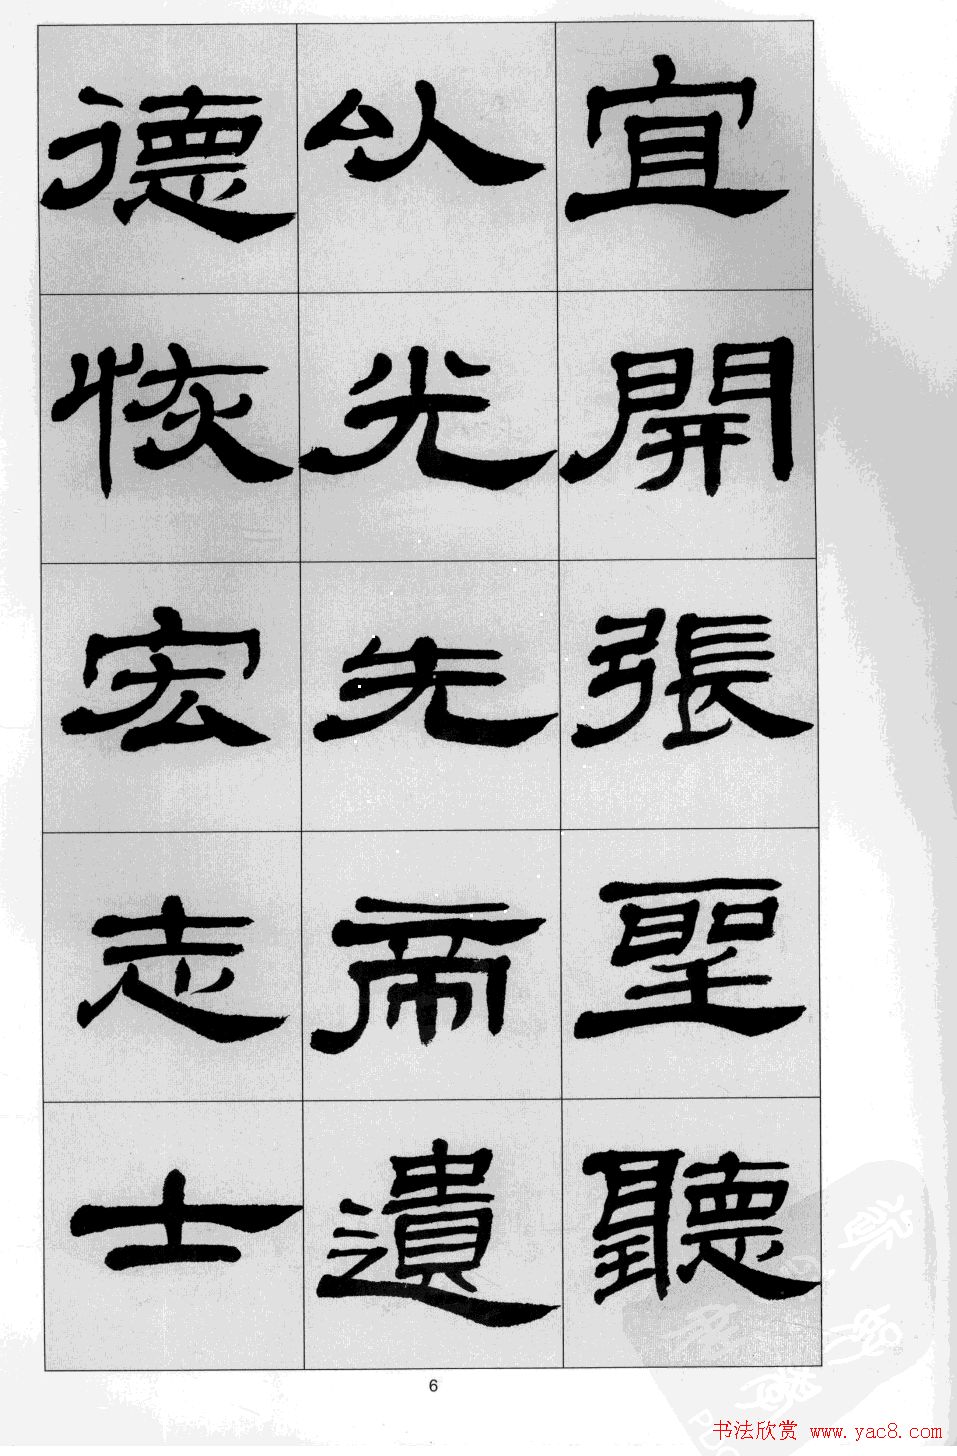 宜開張聖聽
以光先帝遺
德恢宏志士
6
书法欣赏 www.yac8.com